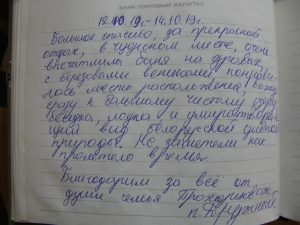 БАНК ТОРГОВЫЙ КАПИТАЛ
12.10.19г.-14.10.19г.
Большое спасибо, за прекрасный
отдых, в чудесном месте, очень
впечатлила баня на дровах,
с березовым веником, понрави
лось место расположения
сразу к большому чистому озеру
беседка, лодка и умиротворяю
щий вид белорусской
природы. Не заметели как
пролетело время.
Благодарим за всё от
души семья
п. Дружный.